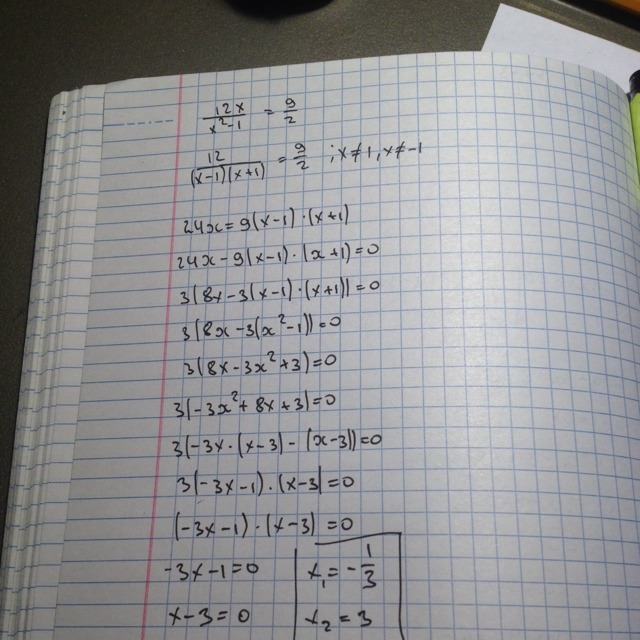 12x/x²-1 = 9/2
12/(x-1)(x+1) = 9/2 ; x≠1, x≠-1
24x=9(x-1)·(x+1)
24x-9(x-1)·(x+1)=0
3(8x-3(x-1)·(x+1))=0
3(8x-3(x²-1))=0
3(8x-3x²+3)=0
3(-3x²+8x+3)=0
3(-3x·(x-3)-(x-3))=0
3(-3x-1)·(x-3)=0
(-3x-1)·(x-3)=0
-3x-1=0 x₁=-1/3
x-3=0 x₂=3